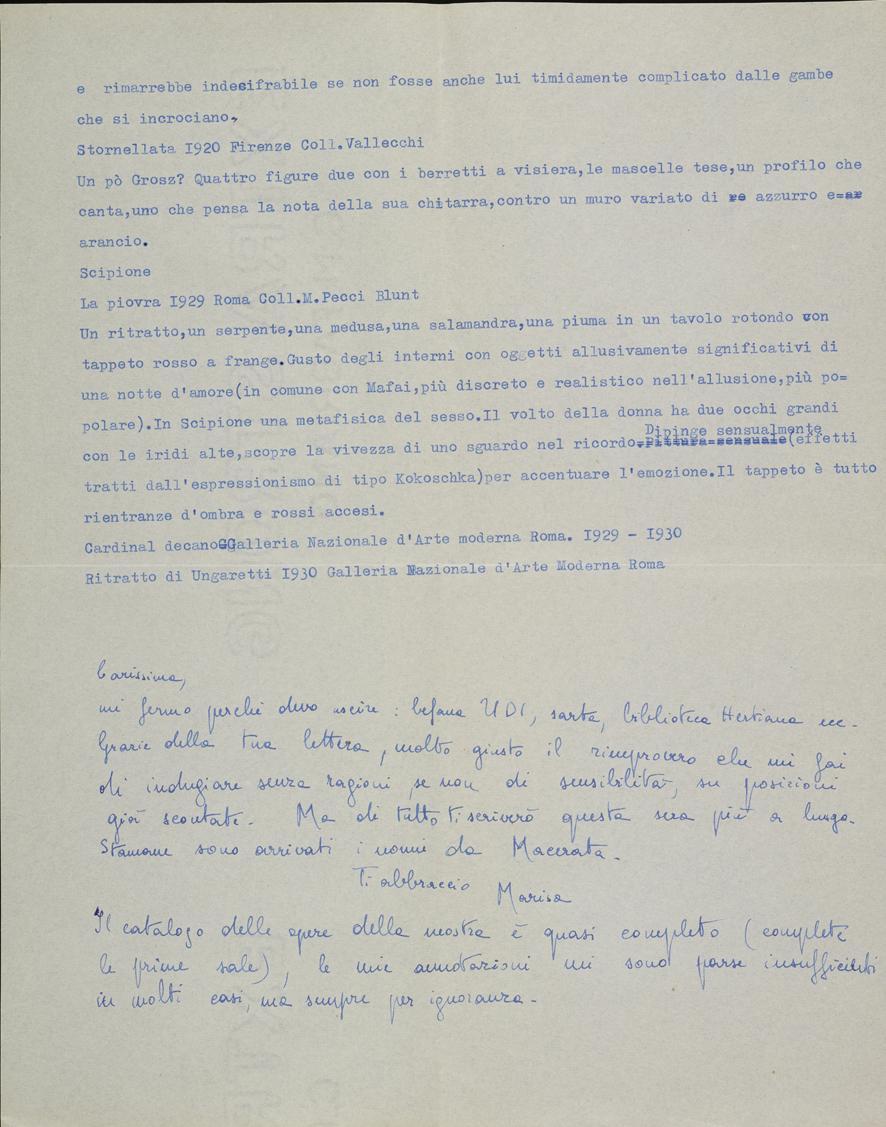 e rimarrebbe indecifrabile se non fosse anche lui timidamente complicato dalle gambe
che si incrociano,
Stornellata I920 Firenze Coll.Vallecchi
Un pò Grosz? Quattro figure due con i berretti a visiera,le mascelle tese,un profilo che
canta,uno che pensa la nota della sua chitarra,contro un muro variato di re azzurro e=ar
arancio.
Scipione
La piovra I929 Roma Coll.M.Pecci Blunt
Un ritratto,un serpente,una medusa,una salamandra,una piuma in un tavolo rotondo con
tappeto rosso a frange.Gusto degli interni con oggetti allusivamente significativi di
una notte d'amore(in comune con Mafai,più discreto e realistico nell'allusione,più po=
polare).In Scipione una metafisica del sesso.Il volto della donna ha due occhi grandi
Dipinge sensualmente
con le iridi alte,scopre la vivezza di uno sguardo nel ricordo.Pittura=sensuale(effetti
tratti dall'espressionismo di tipo Kokoschka)per accentuare l'emozione.Il tappeto è tutto
rientranze d'ombra e rossi accesi.
Cardinal decanoGGalleria Nazionale d'Arte moderna Roma. I929 - I930
Ritratto di Ungaretti I930 Galleria Nazionale d'Arte Moderna Roma
Carissima,
mi fermo perché devo uscire : befana UDI, sarta, biblioteca Hertiana ecc.
Grazie della tua lettera, molto giusto il rimprovero che mi fai
di indugiare senza ragioni, se non di sensibilità, su posizioni
già scontate. Ma di tutto ti scriverò questa sera più a lungo.
Stamane sono arrivati i nonni da Macerata.
Ti abbraccio Marisa
Il catalogo delle opere della mostra è quasi completo (complete
le prime sale), le mie annotazioni mi sono parse insufficienti
in molti casi, ma sempre per ignoranza.